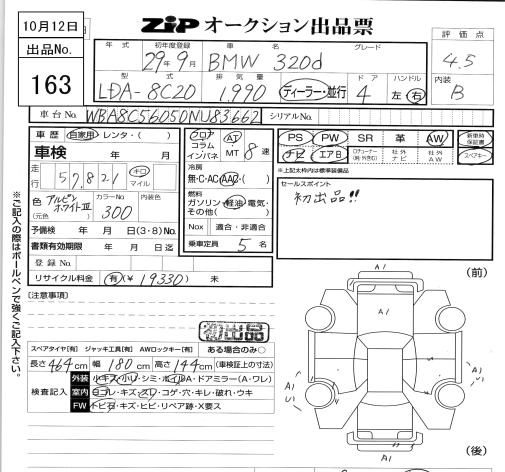 10月12日
ZIP オークション出品票
出品No.
163
年式 初年度登録 車名 グレード
29年9月 BMW 320d
評価点
4.5
型式 排気量 ドア ハンドル
LDA-8C20 1,990 ディーラー・並行 4 左 右
内装
B
車台No. WBA8C56050NU83662 シリアルNo.
車歴 自家用・レンタ・( )
車検 年 月
走行 57,821 キロ マイル
色(元色) アルピンホワイトⅢ カラーNo. 300 内装色
予備検 年 月 日(3・8)No.
書類有効期限 年 月 日迄
登録No.
リサイクル料金 有(¥ 19330) 未
フロア コラム インパネ AT・MT 8速
冷房
無・C・AC・AAC・( )
燃料
ガソリン・軽油・電気・その他( )
Nox 適合・非適合
乗車定員 5 名
PS PW SR 革 AW 新車時保証書
ナビ エアB 社外ナビ 社外AW スペアキー
※上記太枠内は標準装備品
セールスポイント
初出品!!
※ご記入の際はボールペンで強くご記入下さい。
[注意事項]
初出品
スペアタイヤ[有] ジャッキ工具[有] AWロックキー[有] ある場合のみ○
長さ 464 cm 幅 180 cm 高さ 144 cm (車検証上の寸法)
検査記入
外装 小キズ・小凹・シミ・ホイルA・ドアミラー(A・ワレ)
室内 ヨゴレ・キズ・スレ・コゲ・穴・キレ・破れ・ウキ
FW トビ石・キズ・ヒビ・リペア跡・X要ス
(前)
A1
A1
A1
U1
A1
U1
A1
(後)